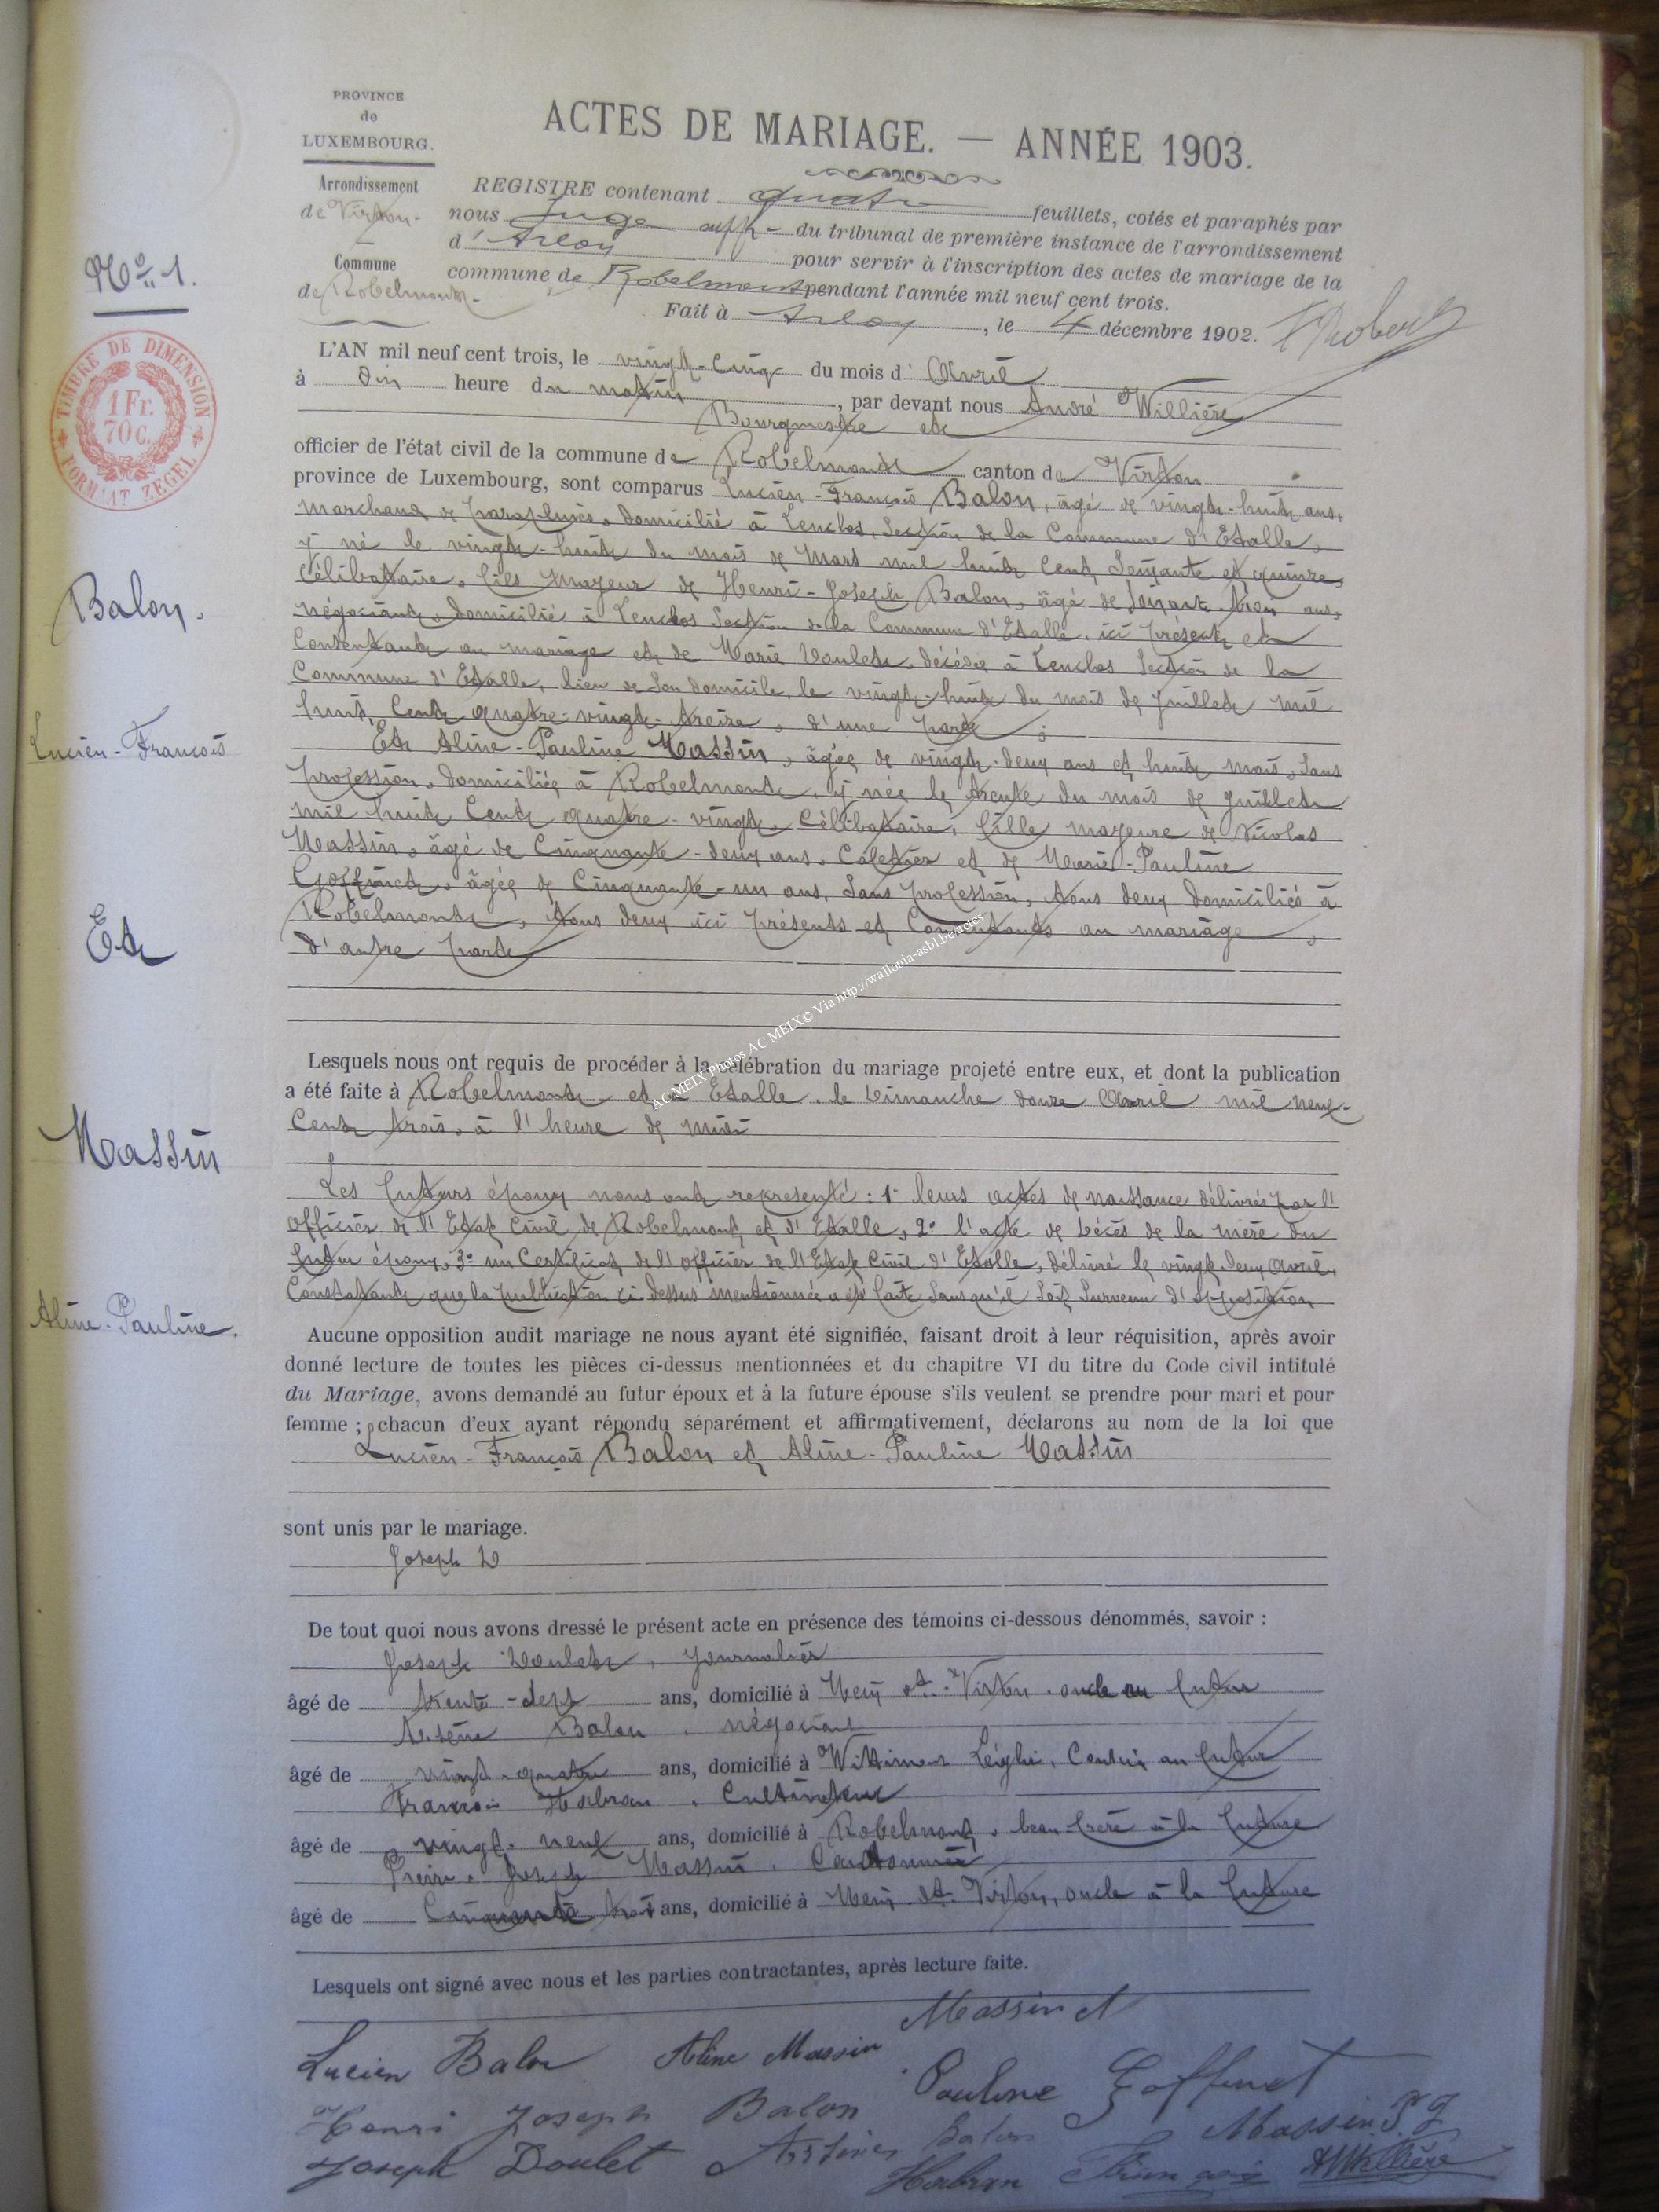 PROVINCE
de
LUXEMBOURG.
Arrondissement
de Virton
Commune
de Robelmont
ACTES DE MARIAGE. — ANNÉE 1903.
REGISTRE contenant quatre feuillets, cotés et paraphés par
nous Juge du tribunal de première instance de l'arrondissement
d'Arlon pour servir à l'inscription des actes de mariage de la
commune de Robelmont pendant l'année mil neuf cent trois.
Fait à Arlon, le 4 décembre 1902.
No. 1.
TIMBRE DE DIMENSION
1 Fr.
70 c.
FORMAT ZEGEL
L'AN mil neuf cent trois, le vingt-cinq du mois d'Avril
à dix heure du matin, par devant nous André Willière
Bourgmestre et
officier de l'état civil de la commune de Robelmont canton de Virton
province de Luxembourg, sont comparus Lucien-François Balon, âgé de vingt-huit ans,
marchand de parapluies, domicilié à Lenclos, Section de la Commune d'Etalle,
y né le vingt-huit du mois de Mars mil huit cent Soixante et quinze,
célibataire, fils majeur de Henri-Joseph Balon, âgé de soixante-trois ans,
négociant, domicilié à Lenclos Section de la Commune d'Etalle, ici présent et
Consentant au mariage et de Marie Doulet, décédée à Lenclos Section de la
Commune d'Etalle, lieu de son domicile, le vingt-huit du mois de Juillet mil
huit Cent quatre-vingt-treize, d'une part ;
Et Aline-Pauline Massin, âgée de vingt-deux ans et huit mois, sans
profession, domiciliée à Robelmont, y née le trente du mois de juillet
mil huit Cent quatre-vingt, Célibataire, fille majeure de Nicolas
Massin, âgé de Cinquante-deux ans, Cafetier et de Marie-Pauline
Goffinet, âgée de Cinquante-un ans, sans profession, tous deux domiciliés à
Robelmont, tous deux ici présents et Consentants au mariage,
d'autre part
Balon.
Lucien-François
Et
Massin
Aline-Pauline.
Lesquels nous ont requis de procéder à la célébration du mariage projeté entre eux, et dont la publication
a été faite à Robelmont et à Etalle, le Dimanche douze Avril mil neuf-
Cent trois, à l'heure de midi
Les futurs époux nous ont representé : 1° leurs actes de naissance délivrés par l'
officier de l'Etat Civil de Robelmont et d'Etalle, 2° l'acte de décès de la mère du
futur époux, 3° un Certificat de l'officier de l'Etat Civil d'Etalle, délivré le vingt-deux Avril,
Constatant que la publication ci-dessus mentionnée a été faite sans qu'il soit survenu d'opposition
Aucune opposition audit mariage ne nous ayant été signifiée, faisant droit à leur réquisition, après avoir
donné lecture de toutes les pièces ci-dessus mentionnées et du chapitre VI du titre du Code civil intitulé
du Mariage, avons demandé au futur époux et à la future épouse s'ils veulent se prendre pour mari et pour
femme ; chacun d'eux ayant répondu séparément et affirmativement, déclarons au nom de la loi que
Lucien-François Balon et Aline-Pauline Massin
sont unis par le mariage.
Joseph D
De tout quoi nous avons dressé le présent acte en présence des témoins ci-dessous dénommés, savoir :
Joseph Doulet, journalier
âgé de trente-sept ans, domicilié à Meix dt. Virton, oncle au futur
Arsène Balon, négociant
âgé de vingt-quatre ans, domicilié à Wittimont Léglise, Cousin au futur
François Habran, Cultivateur
âgé de vingt-neuf ans, domicilié à Robelmont, beau-frère à la future
Pierre-Joseph Massin, Cordonnier
âgé de Cinquante trois ans, domicilié à Meix dt. Virton, oncle à la future
Lesquels ont signé avec nous et les parties contractantes, après lecture faite.
Lucien Balon Aline Massin Massin N
Henri Joseph Balon Pauline Goffinet
Joseph Doulet Arsène Balon Massin P. J
Habran François AWillière
AC MEIX Photos AC MEIX © Via http://wallonia-asbl.be/actes